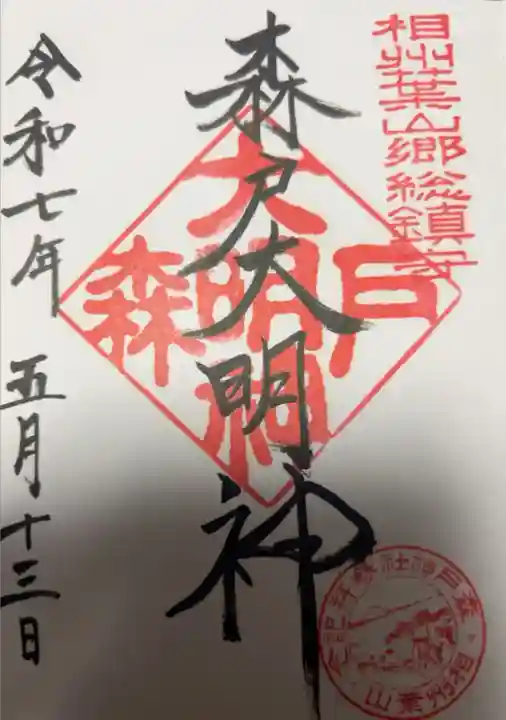 相州葉山郷総鎮守
森戸大明神
森戸大明神
令和七年 五月十三日
相州葉山